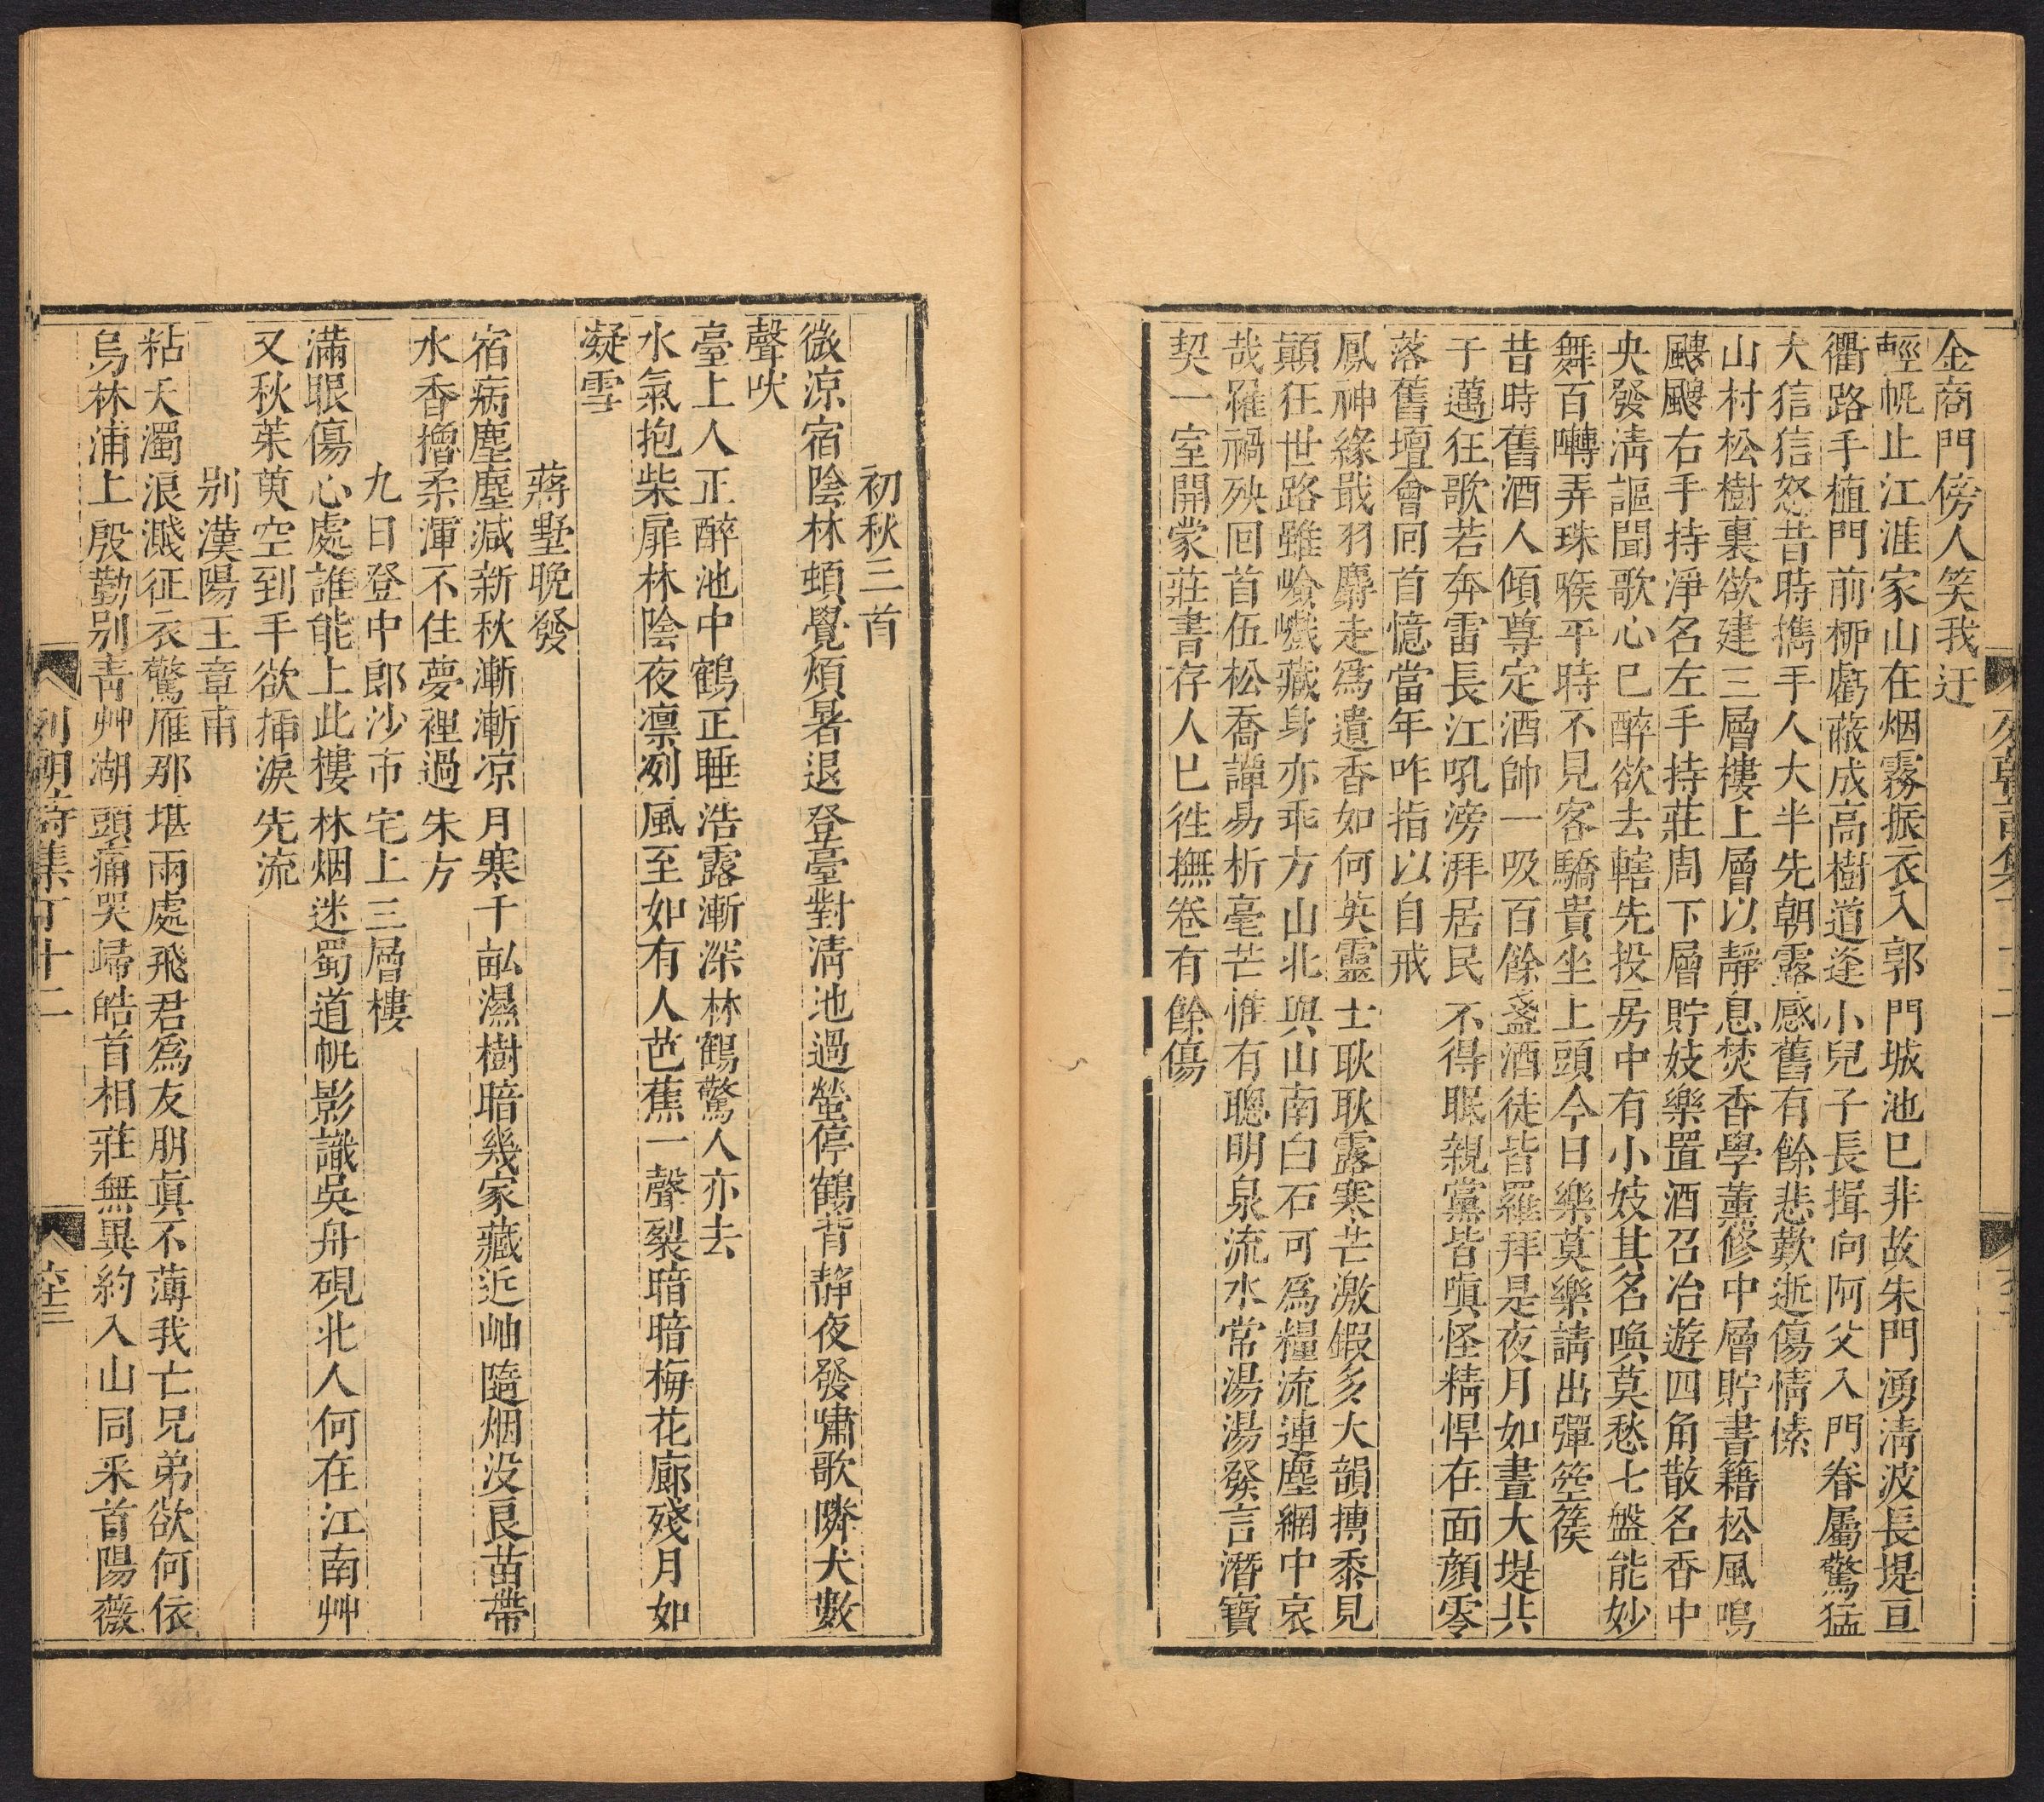 金商門傍人笑我迂
輕帆止江涯家山在烟霧振衣入郭門城池巳非故朱門湧清波長堤亘
衢路手植門前柳虧蔽成高樹道逢小兒子長揖向阿父入門眷屬驚猛
犬信信怒昔時擕手人大半先朝露感舊有餘悲歎逝傷情愫
山村松樹裏欲建三層樓上層以靜息焚香學薰修中層貯書籍松風鳴
颼颼右手持淨名左手持莊周下層貯妓樂置酒召冶遊四角散名香中
央發清謳聞歌心巳醉欲去轄先投房中有小妓其名喚莫愁七盤能妙
舞百囀弄珠喉平時不見客驕貴坐上頭今日樂莫樂請出彈箜篌
昔時舊酒人傾尊定酒帥一吸百餘盞酒徒皆羅拜是夜月如晝大堤共
于邁狂歌若奔雷長江吼滂湃居民不得眠親黨皆嗔怪精悍在面顔零
落舊壇會回首憶當年咋指以自戒
鳳神緣戢羽麝走爲遺香如何英靈士耿耿露寒芒激鍜多大韻摶黍見
顚狂世路雖嶮巇藏身亦乖方山北與山南白石可爲糧流連塵網中哀
哉罹禍殃回首伍松喬譚易析毫芒惟有聰明泉流水常湯湯發言潛寶
契一室開蒙莊書存人巳徃撫卷有餘傷
初秋三首
微凉宿陰林頓覺煩暑退登臺對淸池過螢停鶴背靜夜發嘯歌隣犬數
聲吠
臺上人正醉池中鶴正睡浩露漸深林鶴驚人亦去
水氣抱柴扉林陰夜凛冽風至如有人芭蕉一聲裂暗暗梅花廊殘月如
凝雪
蔣墅晩發
宿病塵塵减新秋漸漸凉月寒千畆濕樹暗幾家藏近岫隨烟没良苗帶
水香擔柔渾不住夢裡過朱方
九日登中郎沙市宅上三層樓
滿眼傷心處誰能上此樓林烟迷蜀道帆影識吳舟硯北人何在江南艸
又秋茱萸空到手欲揷淚先流
别漢陽王章甫
粘天濁浪濺征衣驚雁那堪兩處飛君爲友朋眞不薄我亡兄弟欲何依
烏林浦上殷勤别靑艸湖頭痛哭歸皓首相莊無異約入山同采首陽薇
列朝詩集丁十二